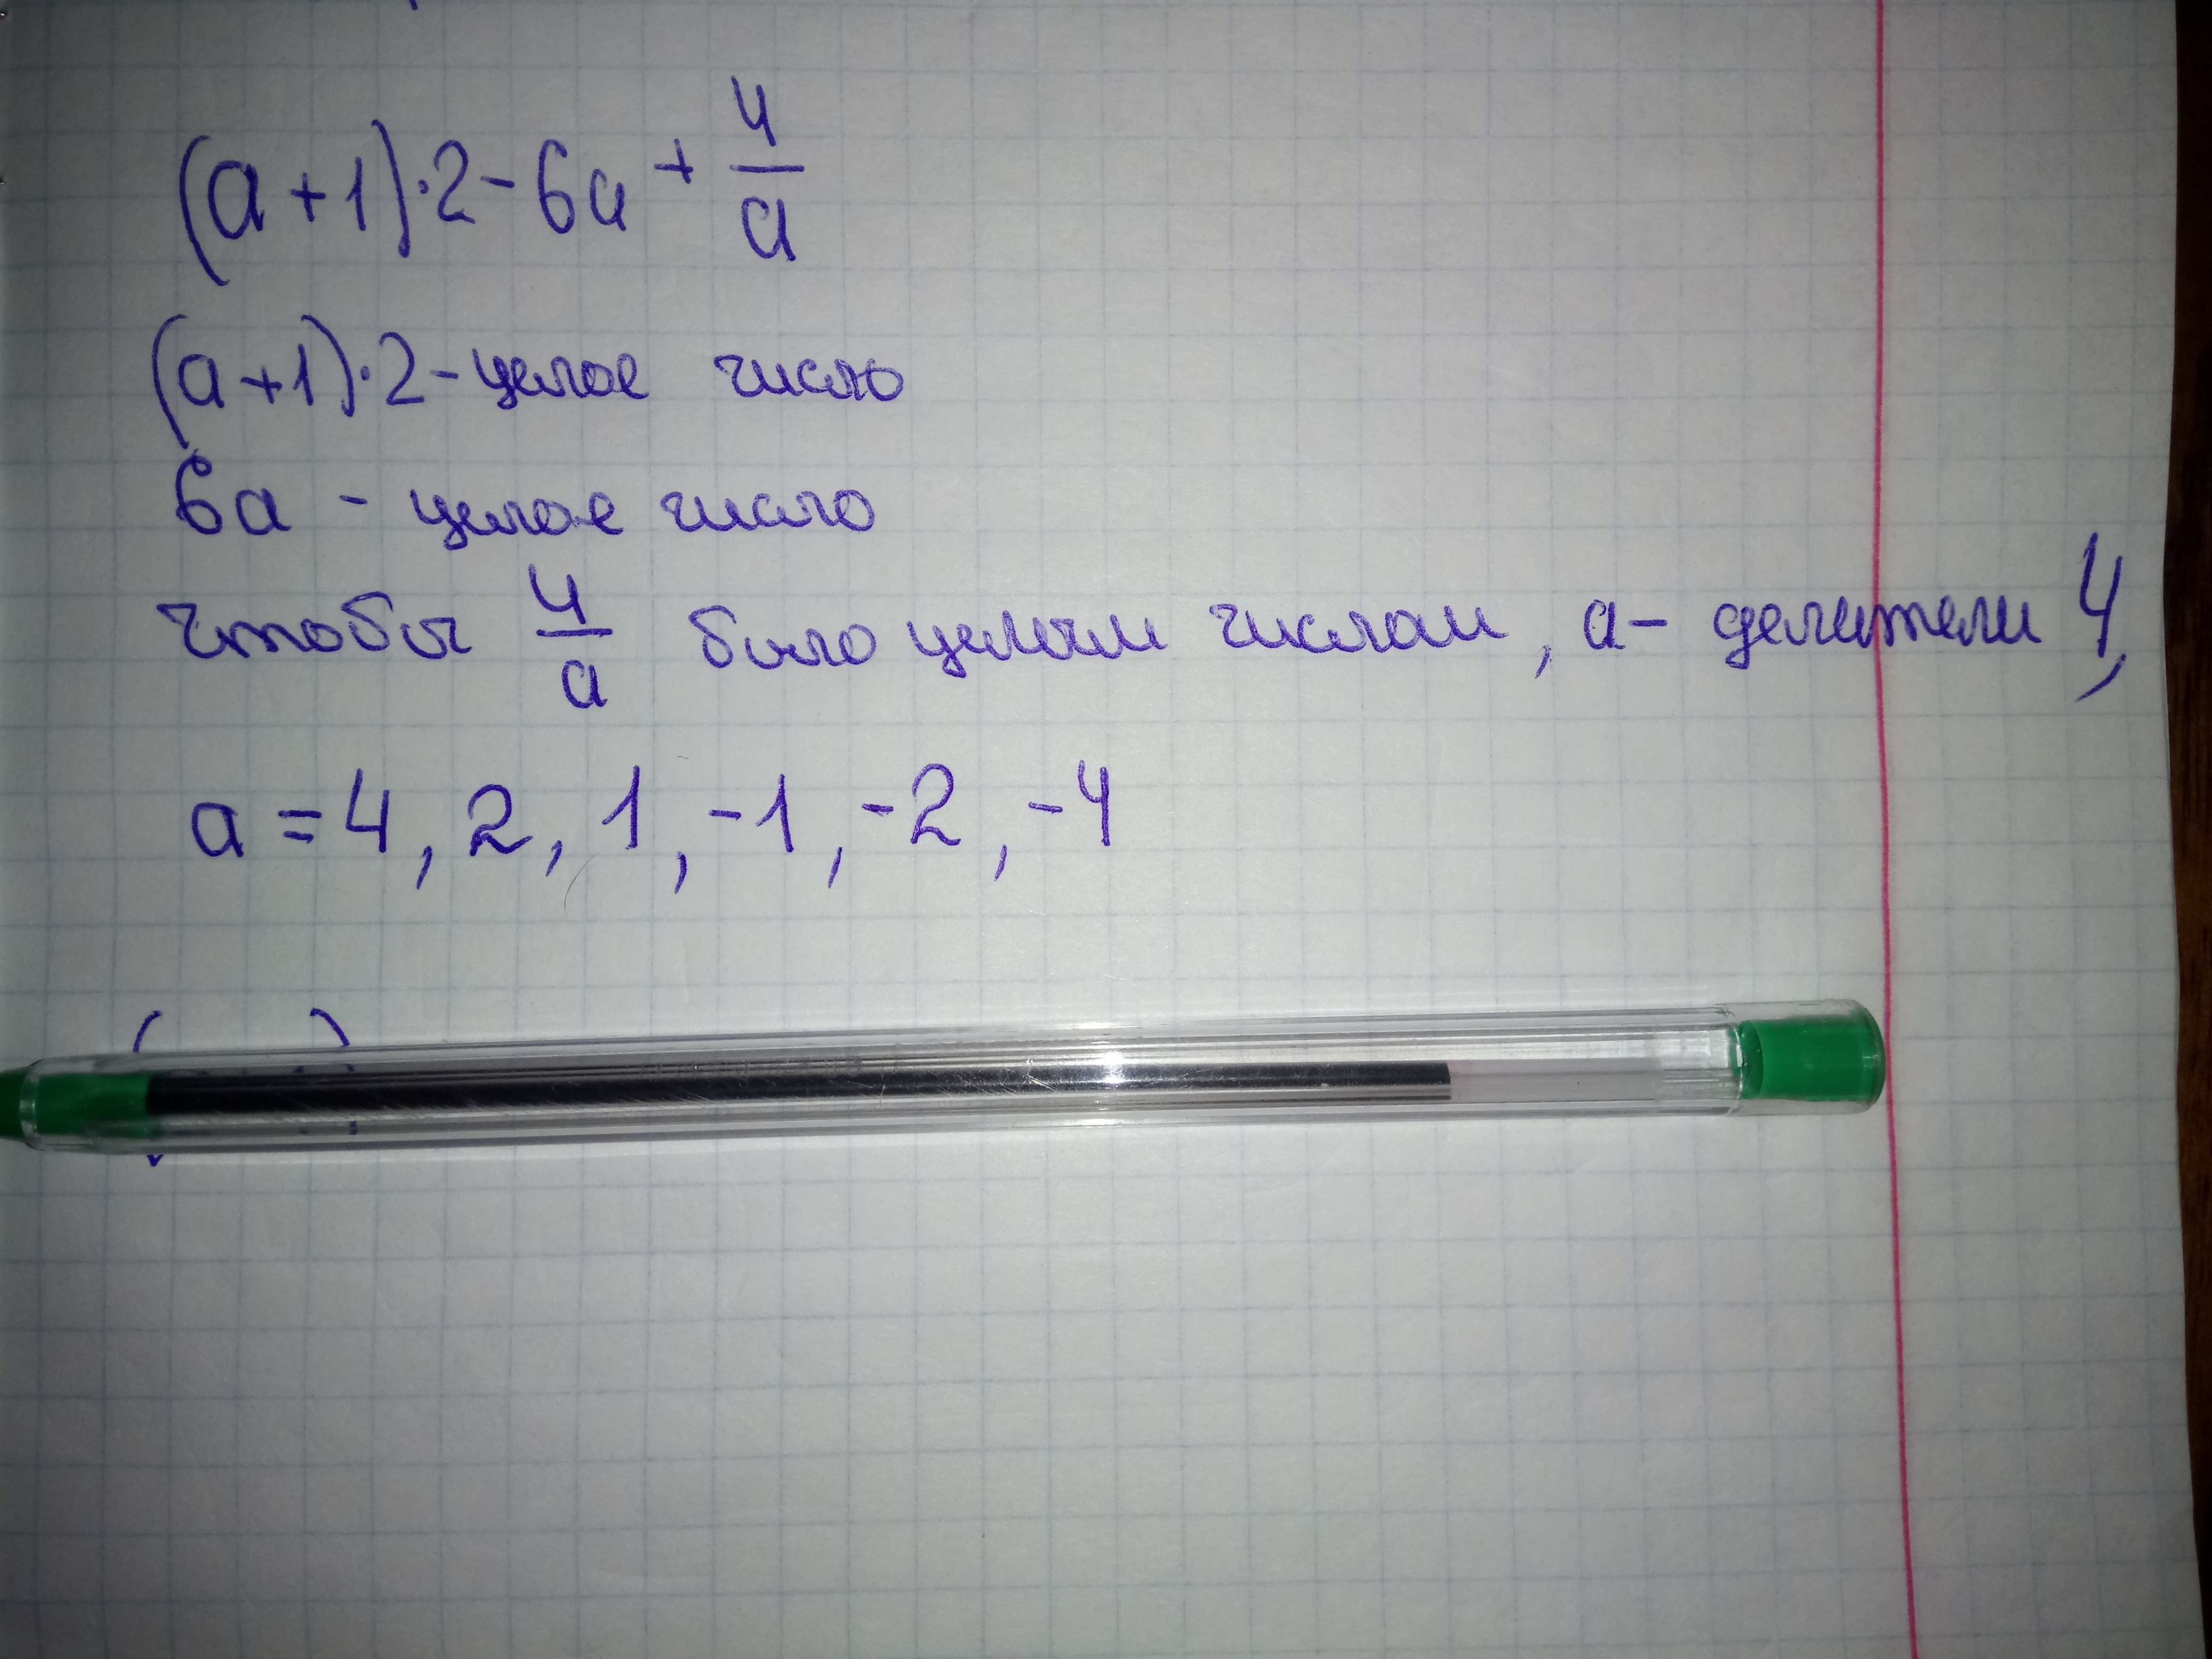 (a+1)·2-6a+4/a
(a+1)·2-целое число
6a - целое число
чтобы 4/a было целым числом, a- делители 4,
a=4, 2, 1, -1, -2, -4
( )